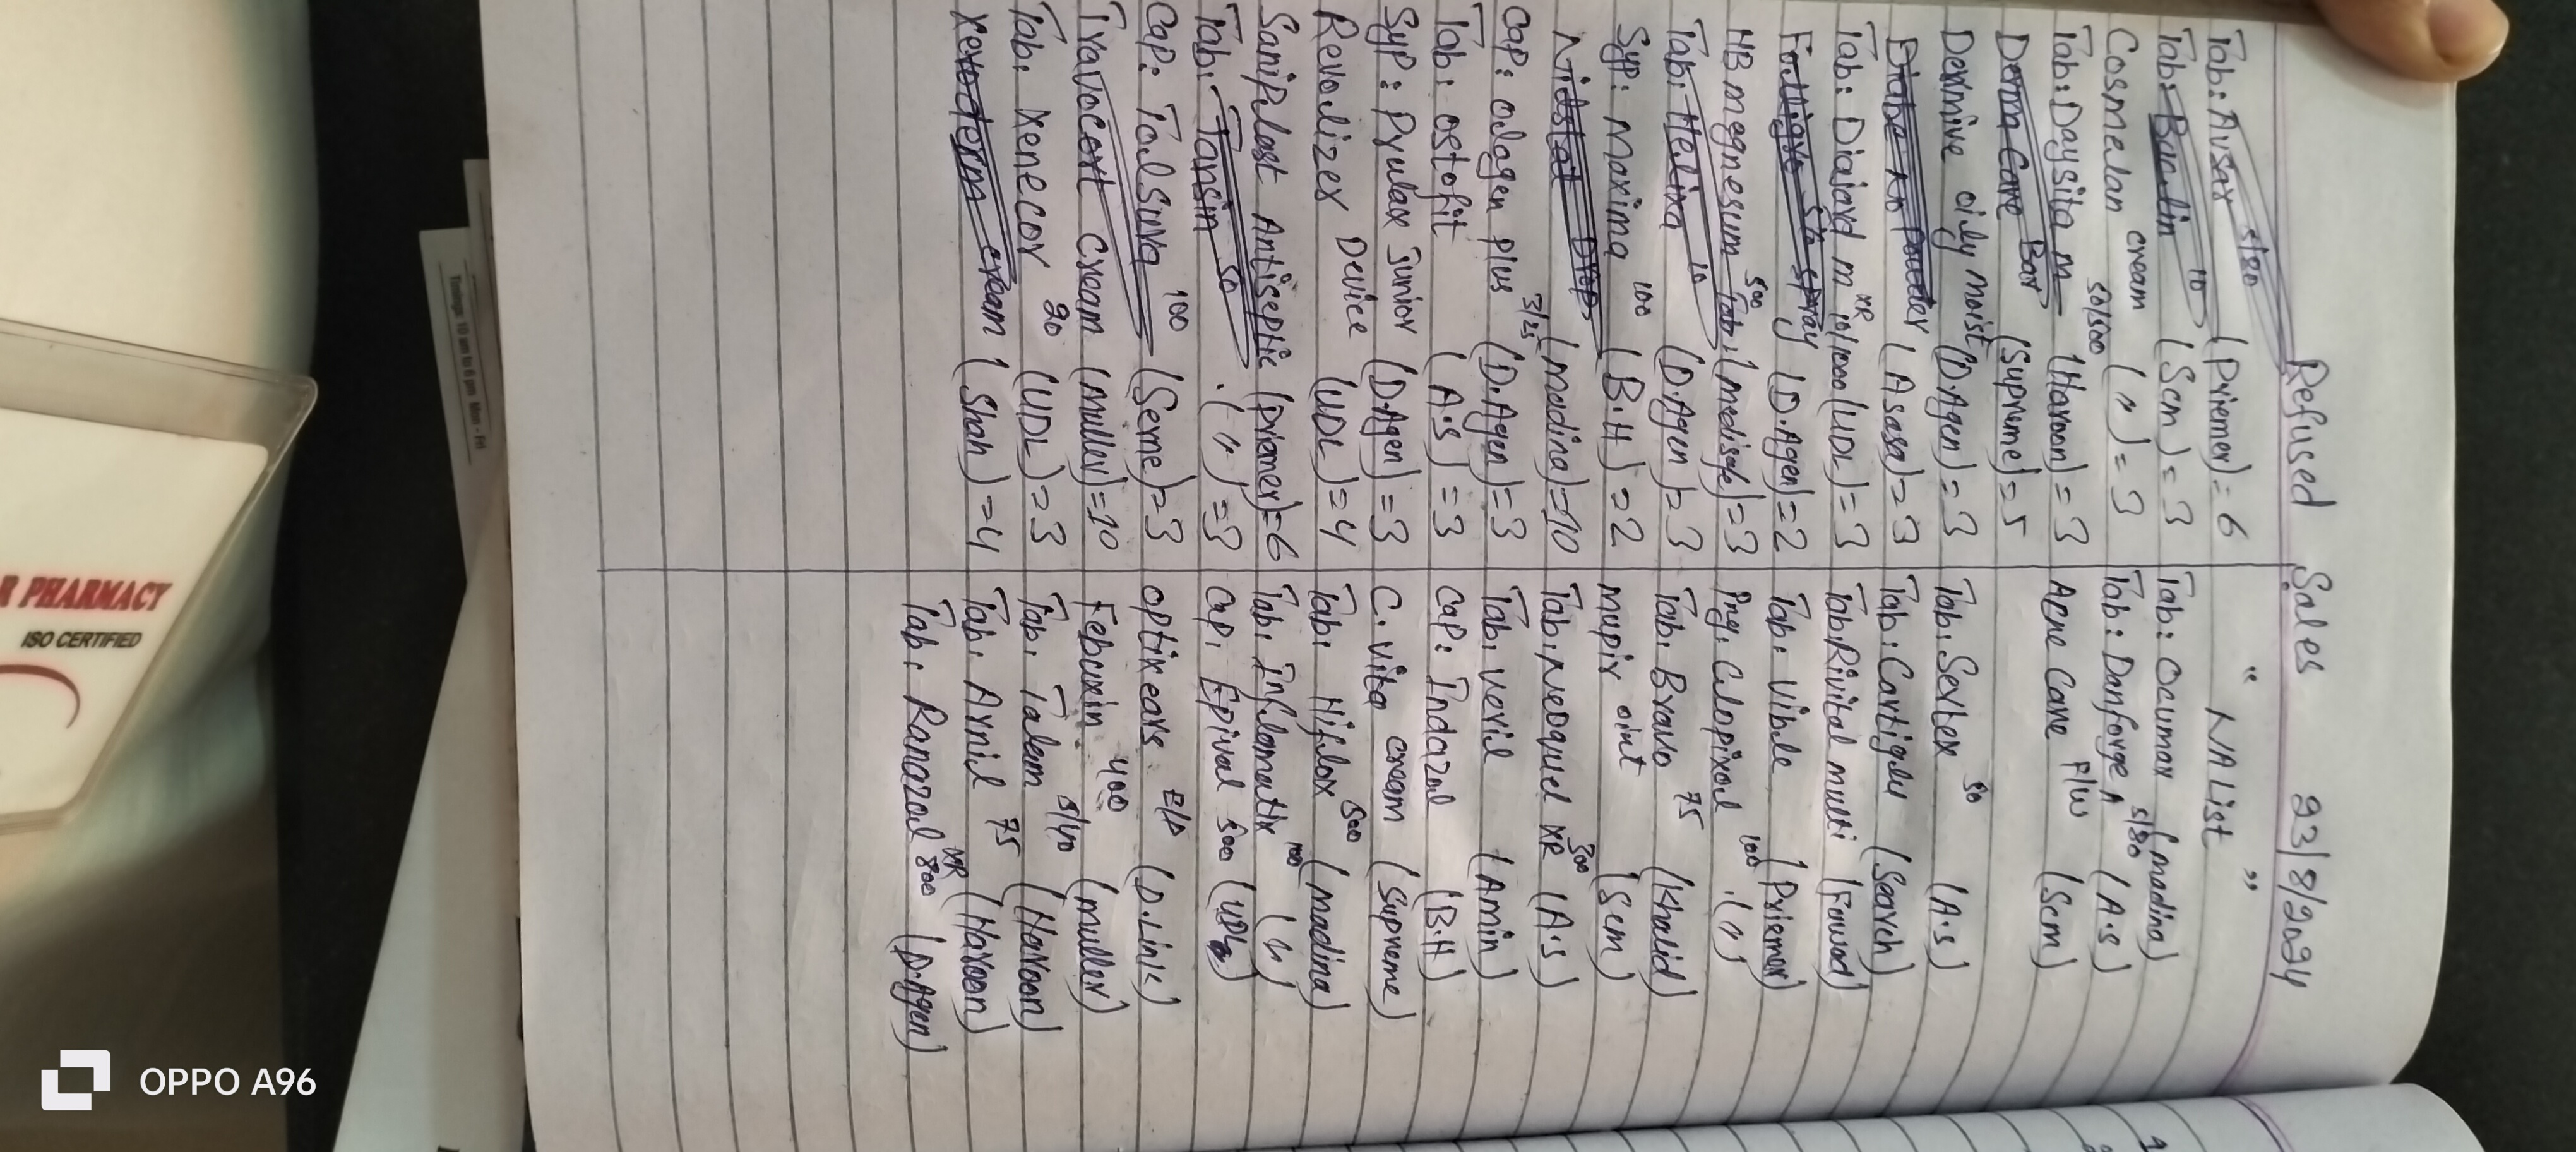 Refused Sales 23/8/2024
Tab: Avsar 5/80 (Priemer) = 6
Tab: 10 (Scm) = 3
Cosmelan cream (") = 3
Tab: Daysita m 50/500 (Haroon) = 3
Derma Care Bar (Supreme) = 5
Dermive oily moist (D.Agen) = 3
Diabe no powder (Asasa) = 3
Tab: Diajard m XR 10/1000 (UDL) = 3
spray (D.Agen) = 2
HB megnesum 500 Tab. (medisafe) = 3
Tab. Helixa 10 (D.Agen) = 3
Syp: Maxima 100 (B.H) = 2
Nidstat Drop (madina) = 10
Cap: olagen plus 3/25 (D.Agen) = 3
Tab: ostofit (A.S) = 3
Syp: Pyulax junior (D.Agen) = 3
Revolizer Device (UDL) = 4
Saniplast Antiseptic (Priemer) = 6
Tab. Tansin 50 (") = 3
Cap: Tolsura 100 (Seme) = 3
Travocort cream (muller) = 10
Tab. Xenecor 20 (UDL) = 3
Xevoderm cream (Shah) = 4
" NA List "
Tab: Ocumax (madina)
Tab: Danforge A 5/80 (A.S)
Acne Care F/W (Scm)
Tab. Serlex 50 (A.S)
Tab. Cartiglu (Search)
Tab. Rivital multi (Fawad)
Tab: Vible (Priemer)
Inj. Clopixol 100 (")
Tab. Bravo 75 (Khalid)
Mupir oint (Scm)
Tab. Neoquel XR 300 (A.S)
Tab. Veril (Amin)
Cap: Indazol (B.H)
C. Vita cream (Supreme)
Tab. Hiflox 500 (madina)
Tab. Inflamatix 100 (")
Cap. Epival 500 (UDL)
optixears E/D (D.Link)
Febuxin 400 (muller)
Tab. Talam 5/40 (Haroon)
Tab. Arnil 75 (Haroon)
Tab. Ramazol XR 800 (D.Agen)
R PHARMACY
ISO CERTIFIED
Timings: 10 am to 6 pm Mon - Fri
OPPO A96